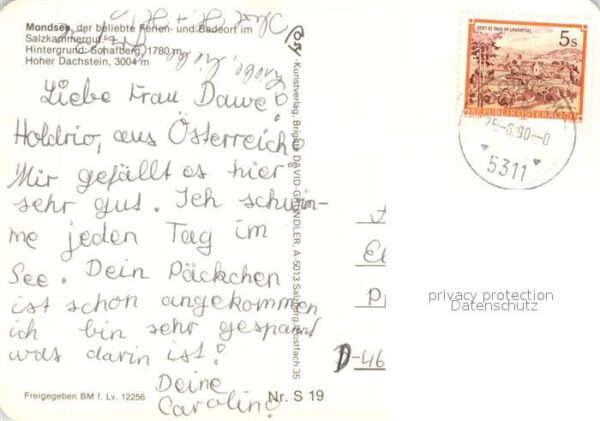 Mondsee, der beliebte Ferien- und Badeort im
Salzkammergut
Hintergrund: Schafberg, 1780 m
Hoher Dachstein, 3004 m
Liebe Frau Dawe!
Holdrio, aus Österreich!
Mir gefällt es hier
sehr gut. Ich schwim-
me jeden Tag im
See. Dein Päckchen
ist schon angekommen
ich bin sehr gespannt
was darin ist!
Deine
Caroline!
Freigegeben BM f. Lv. 12256
Nr. S 19
Kunstverlag, Brigitte DAVID-GRÜNDLER, A-5013 Salzburg, Postfach 35
STIFT ST. PAUL IM LAVANTTAL
5s
REPUBLIK ÖSTERREICH
90
5311
D-46
privacy protection
Datenschutz